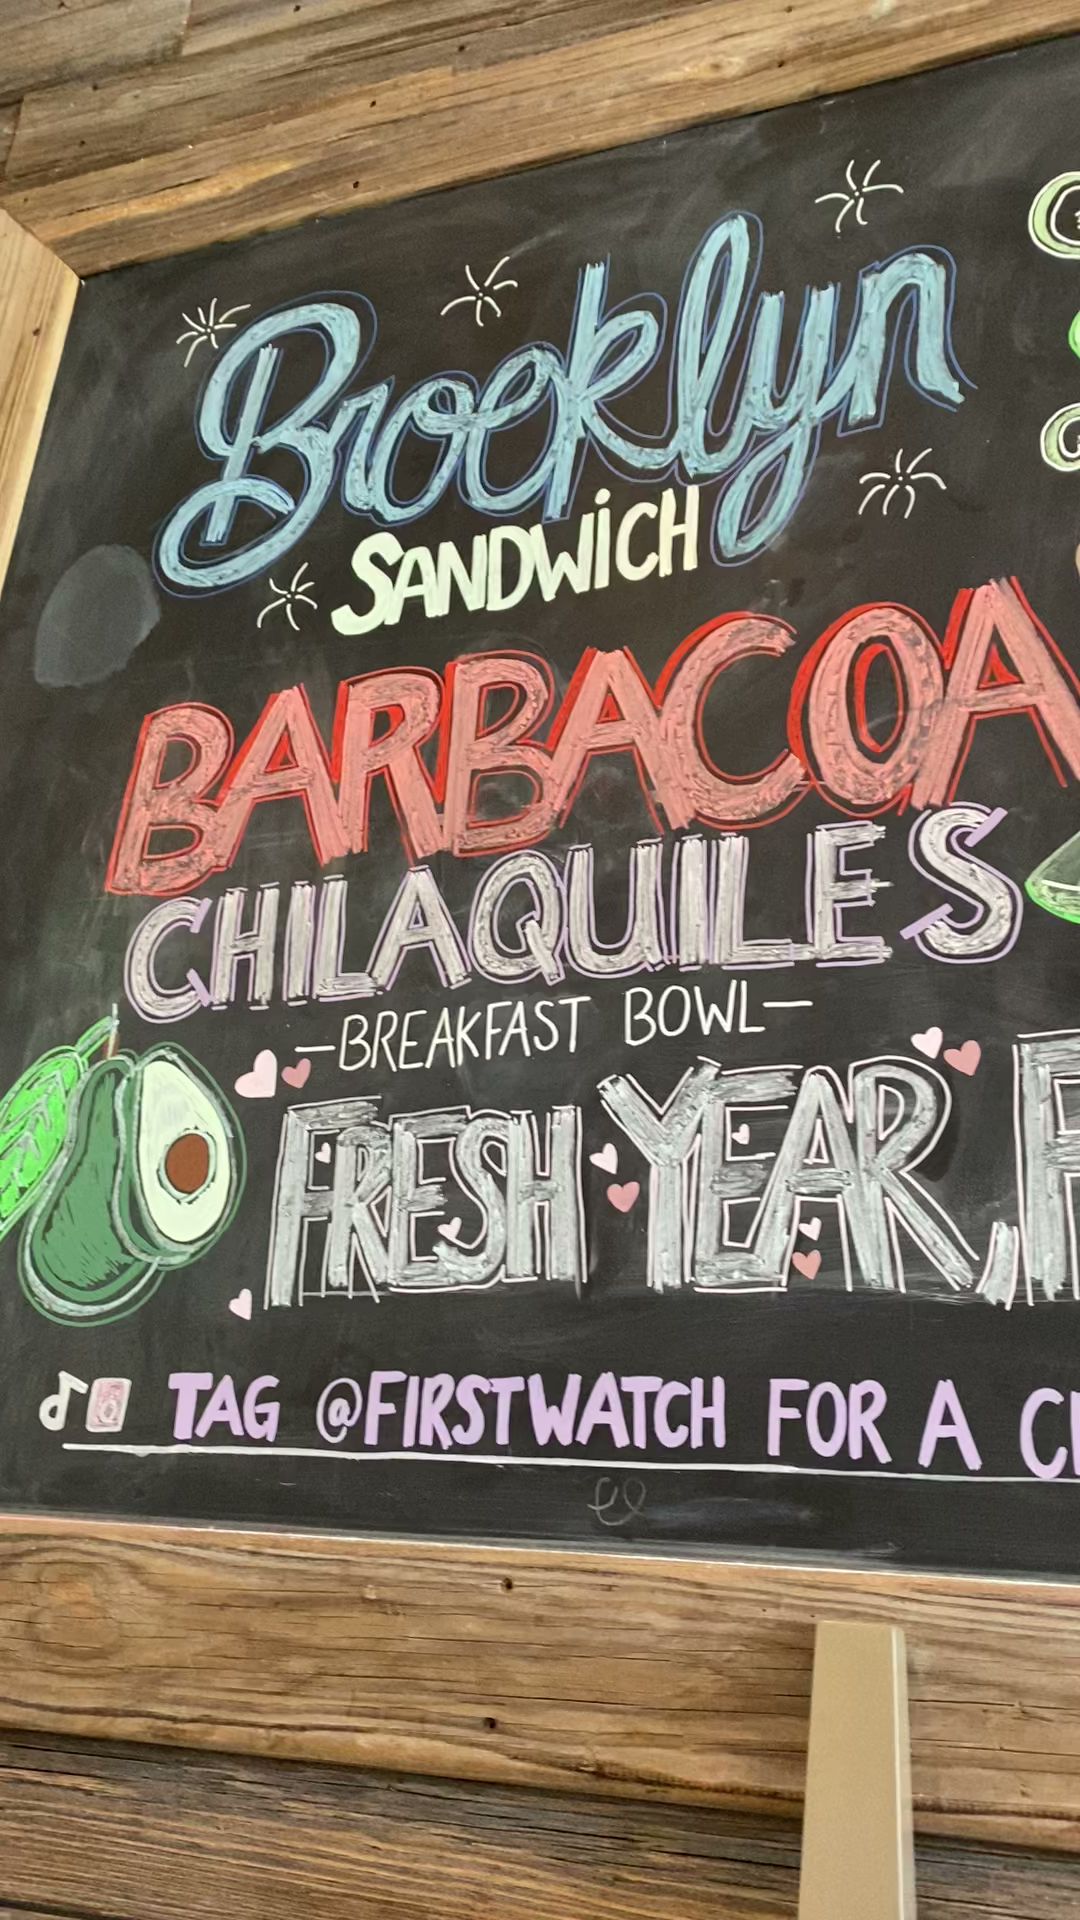 Brooklyn
SANDWiCH
BARBACOA
CHILAQUILES
—BREAKFAST BOWL—
FRESH YEAR,
TAG @FIRSTWATCH FOR A